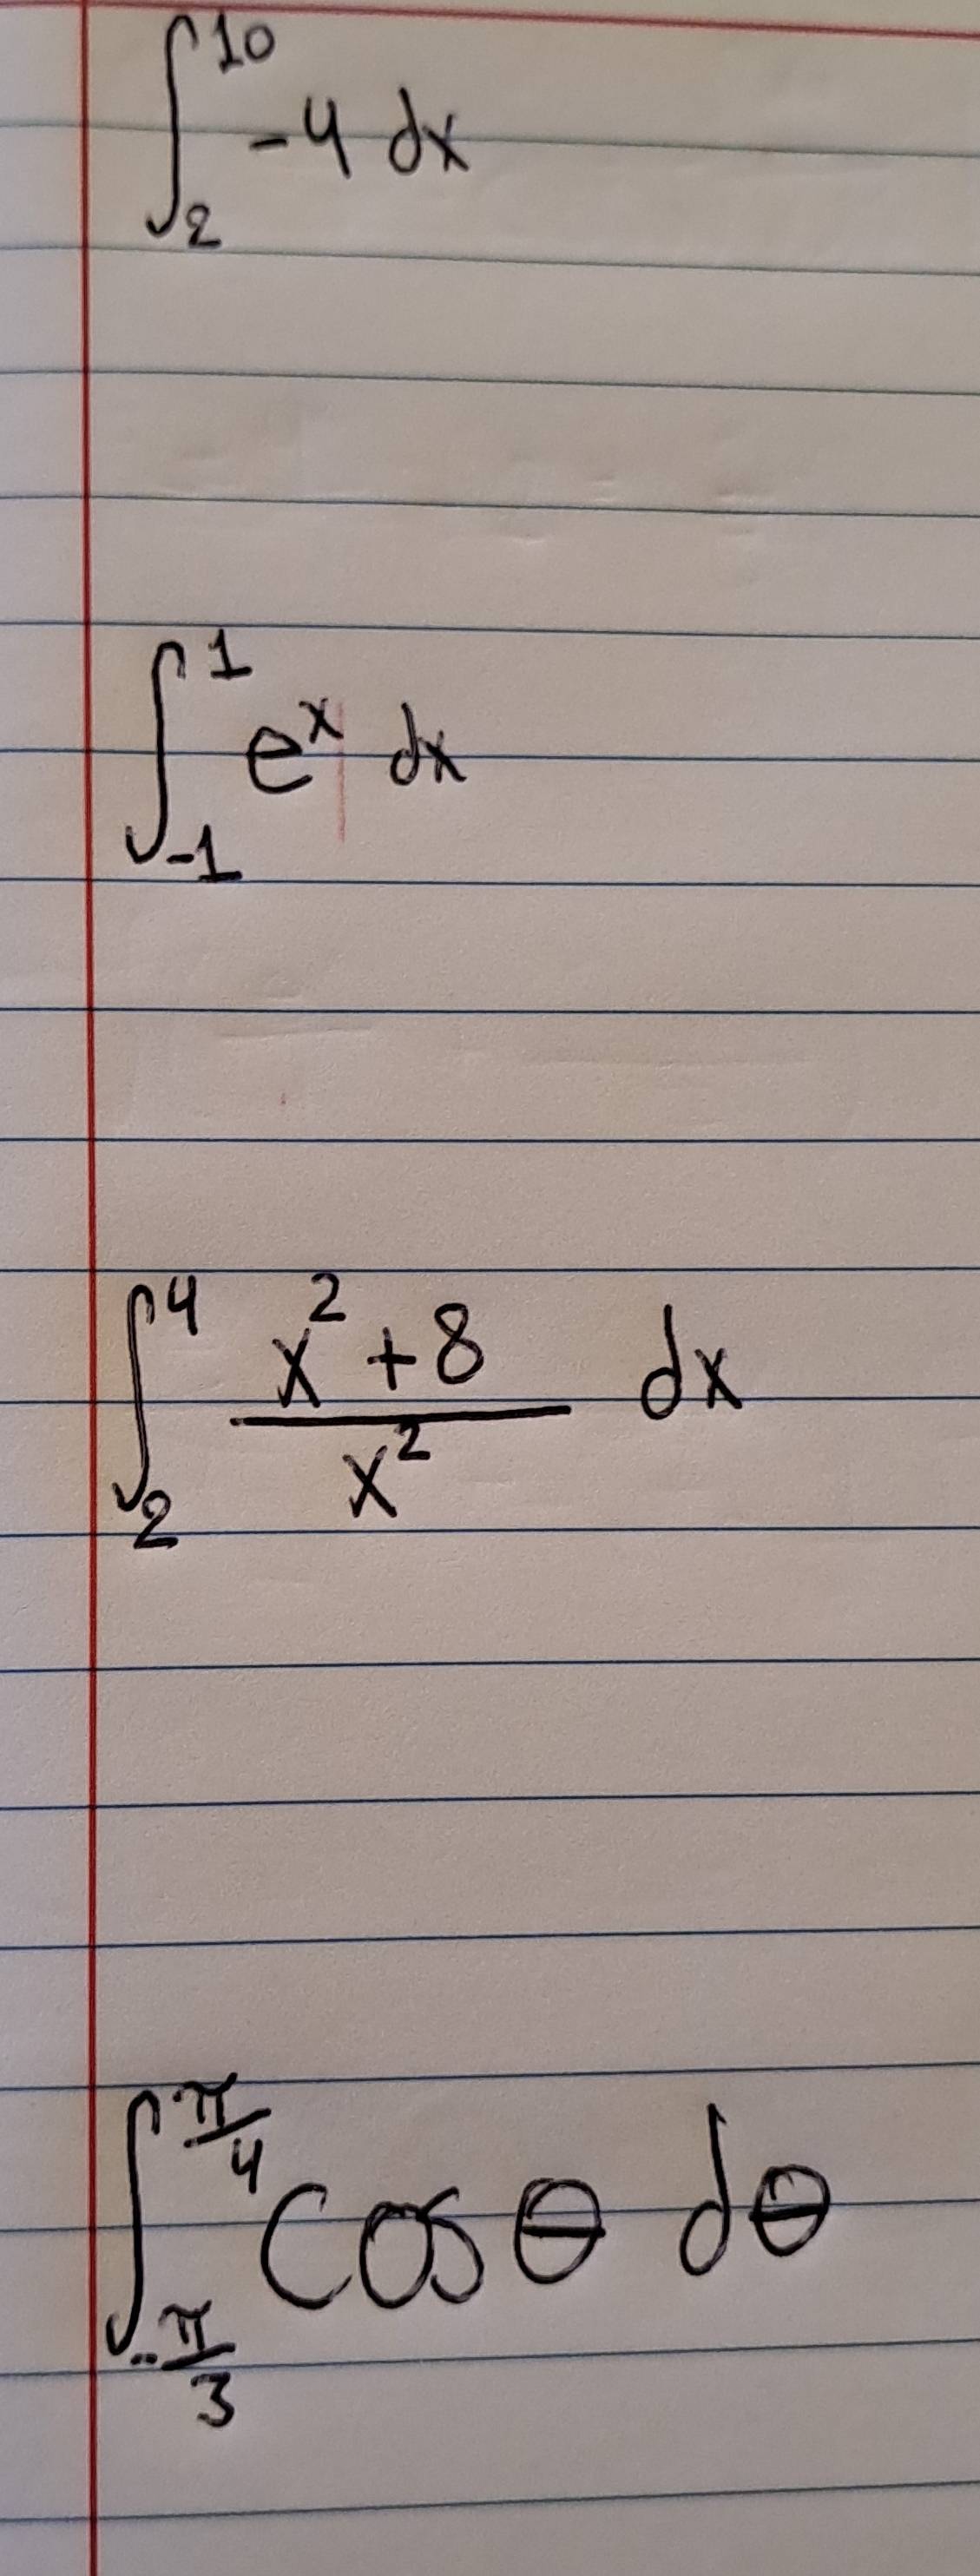 ∫₂¹⁰ -4 dx
∫₋₁¹ eˣ dx
∫₂⁴ (x² + 8)/x² dx
∫_{-π/3}^{π/4} cos θ dθ